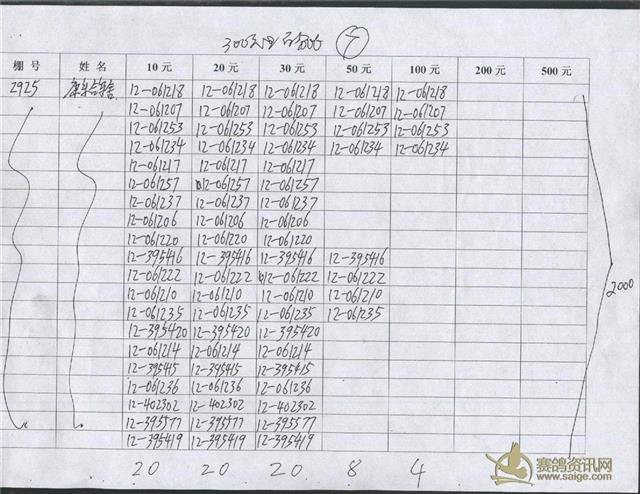 7
棚号 姓名 10元 20元 30元 50元 100元 200元 500元
2925 12-061218 12-061218 12-061218 12-061218 12-061218
12-061207 12-061207 12-061207 12-061207 12-061207
12-061253 12-061253 12-061253 12-061253 12-061253
12-061234 12-061234 12-061234 12-061234 12-061234
12-061217 12-061217 12-061217
12-061257 12-061257 12-061257
12-061237 12-061237 12-061237
12-061206 12-061206 12-061206
12-061220 12-061220 12-061220
12-395416 12-395416 12-395416 12-395416
12-061222 12-061222 12-061222 12-061222
12-061210 12-061210 12-061210 12-061210
12-061235 12-061235 12-061235 12-061235
12-395420 12-395420 12-395420
12-061214 12-061214 12-061214
12-395415 12-395415 12-395415
12-061236 12-061236 12-061236
12-402302 12-402302 12-402302
12-395577 12-395577 12-395577
12-395419 12-395419 12-395419
2000
20 20 20 8 4
赛鸽资讯网
www.saige.com